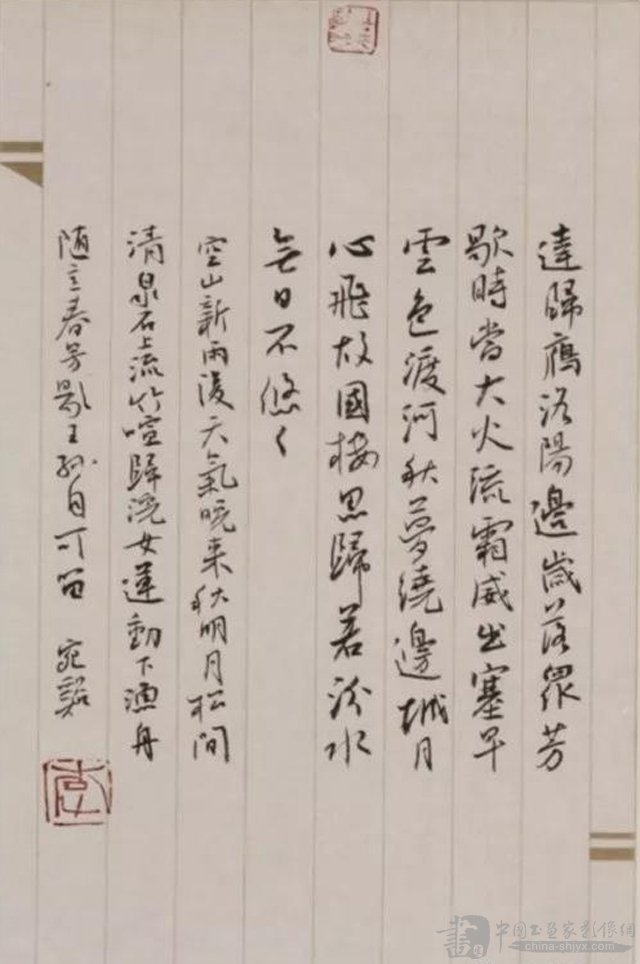 達歸鴈洛陽邊歲落眾芳
歇時當大火流霜威出塞早
雲色渡河秋夢繞邊城月
心飛故國樓思歸若汾水
無日不悠々
空山新雨後天氣晚来秋明月松間
清泉石上流竹喧歸浣女蓮動下漁舟
随意春芳歇王孫自可留 宛
書 中国书画家影像網
china-shjyx.com